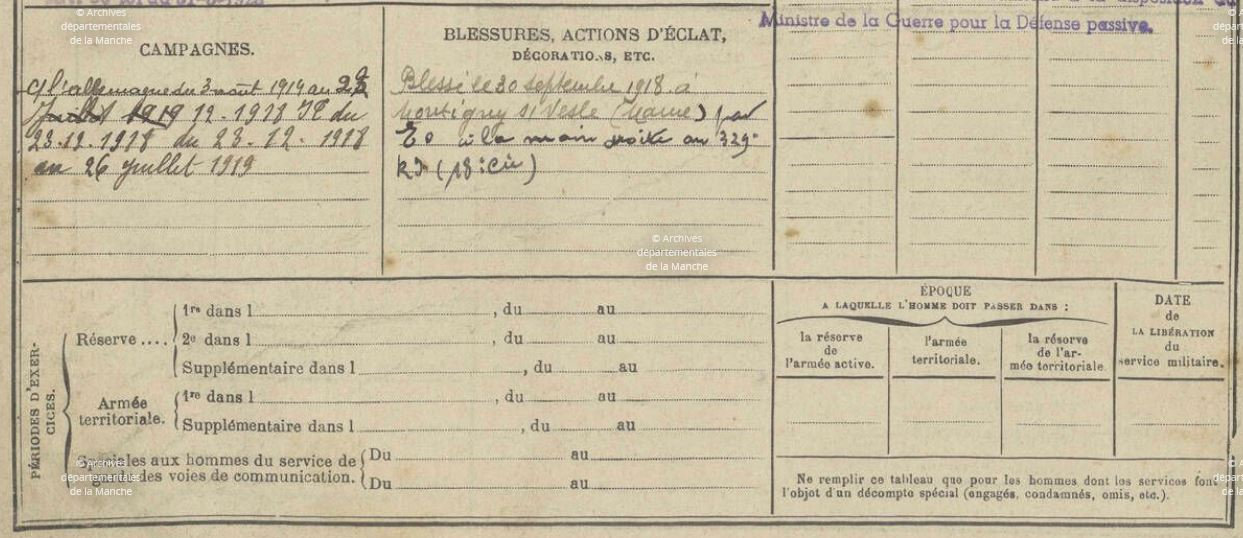 © Archives
départementales
de la Manche
Ministre de la Guerre pour la Défense passive.
CAMPAGNES.
C/ l'allemagne du 3 août 1914 au 22
Juillet 1919 12.1918 IE du
23.12.1918 du 23.12.1918
au 26 juillet 1919
BLESSURES, ACTIONS D'ÉCLAT,
DÉCORATIONS, ETC.
Blessé le 30 septembre 1918 à
Montigny s/ Vesle (Marne) par
EO à la main droite au 329e
RI (18e Cie)
© Archives
départementales
de la Manche
PÉRIODES D'EXER-
CICES.
Réserve ....
1re dans l , du au
2e dans l , du au
Supplémentaire dans l , du au
Armée
territoriale.
1re dans l , du au
Supplémentaire dans l , du au
Spéciales aux hommes du service de
garde des voies de communication.
Du au
Du au
© Archives
départementales
de la Manche
ÉPOQUE
A LAQUELLE L'HOMME DOIT PASSER DANS :
la réserve
de
l'armée active.
l'armée
territoriale.
la réserve
de l'ar-
mée territoriale.
DATE
de
LA LIBÉRATION
du
service militaire.
Ne remplir ce tableau que pour les hommes dont les services font
l'objet d'un décompte spécial (engagés, condamnés, omis, etc.).